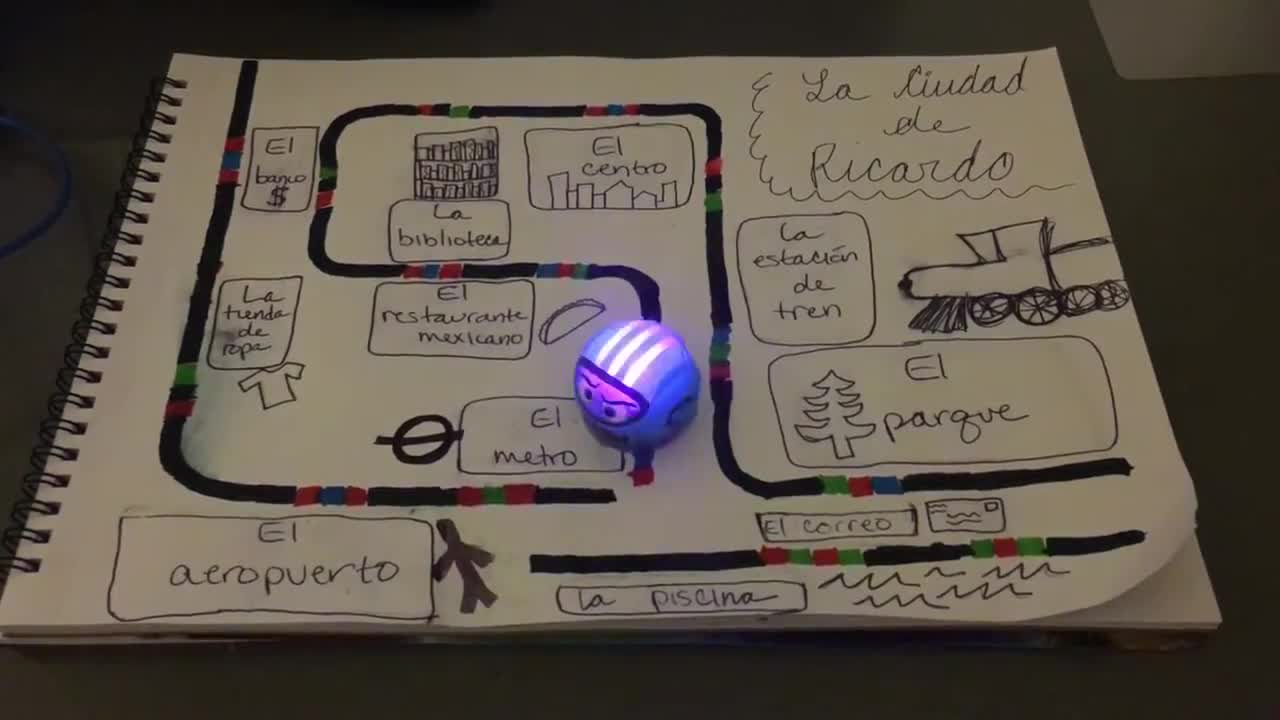 La Ciudad
de
Ricardo
El
banco
$
La
biblioteca
El
centro
La
tienda
de
ropa
El
restaurante
mexicano
La
estación
de
tren
El
metro
El
parque
El correo
El
aeropuerto
La piscina